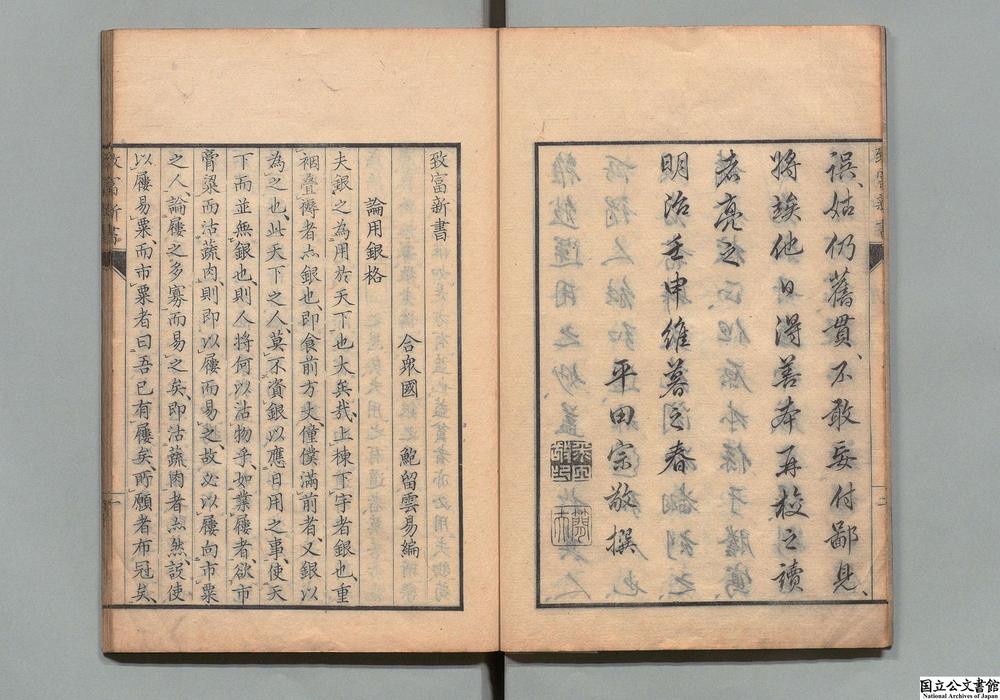 誤、姑仍舊貫、不敢妄付鄙見、
將竢他日得善本再校之讀
者亮之
明治壬申維暮之春
平田宗敬撰
致富新書
合衆國 鮑留雲易編
論用銀格
夫銀之為用於天下也大矣哉、上棟下宇者銀也、重
裀疊褥者亦銀也、即食前方丈、僮僕滿前者、又銀以
為之也、此天下之人、莫不資銀以應日用之事、使天
下而並無銀也、則人將何以沽物乎、如業屨者、欲市
膏粱而沽蔬肉、則即以屨而易之、故必以屨向市粟
之人、論屨之多寡而易之矣、即沽蔬肉者亦然、設使
以屨易粟、而市粟者曰、吾已有屨矣、所願者布冠矣、
致富新書
一
国立公文書館
National Archives of Japan